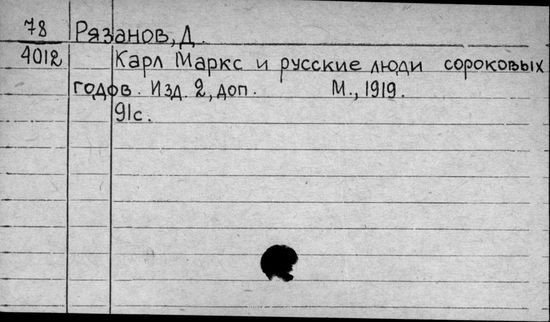 78 Рязанов, Д.
4012 Карл Маркс и русские люди сороковых
годов. Изд. 2, доп. М., 1919.
91с.